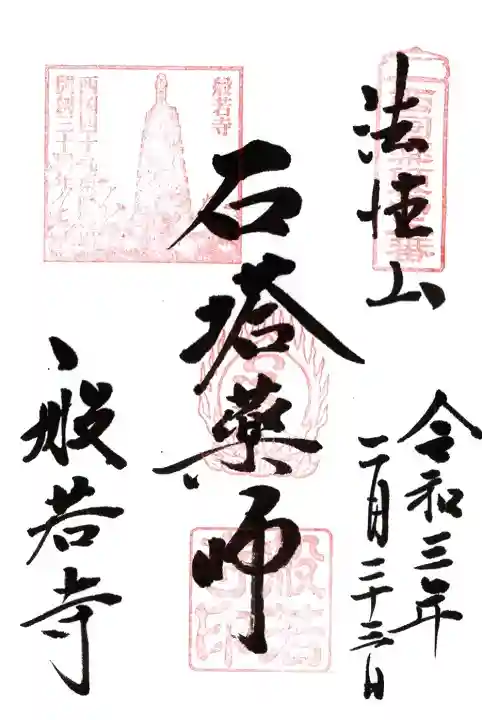 法性山
令和三年
二月二十三日
石塔薬師
般若寺
般若寺
般若寺印